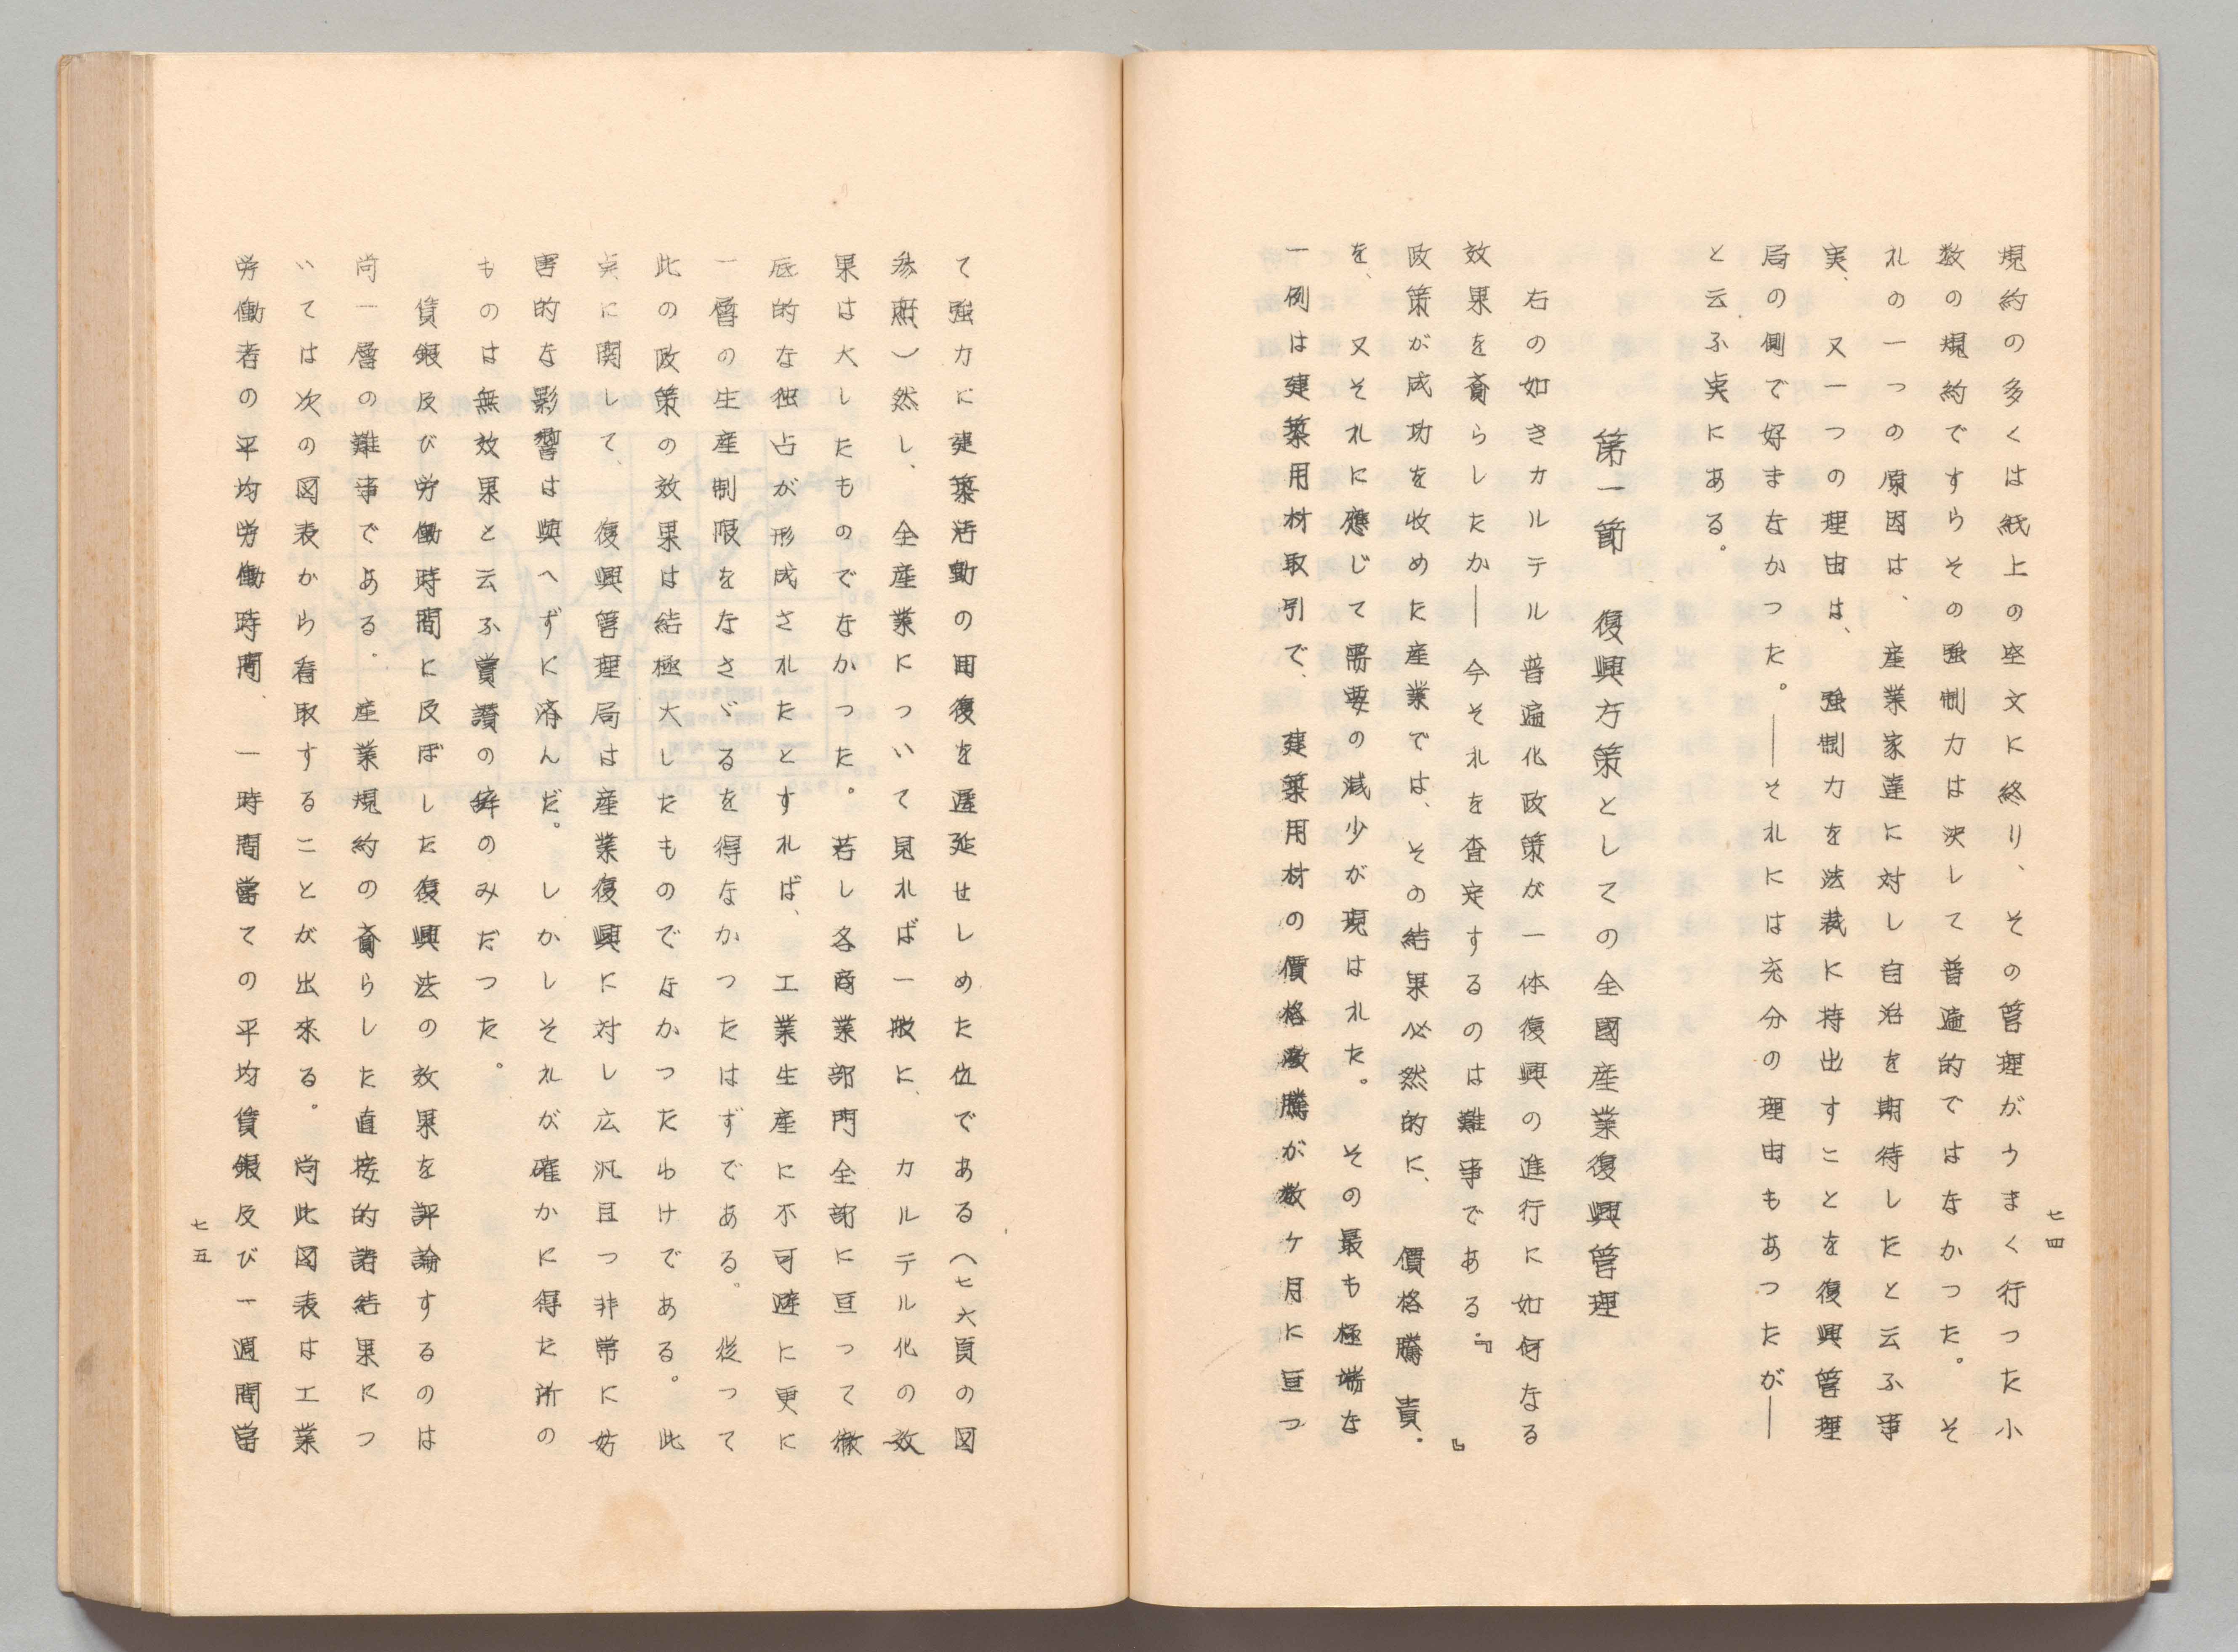 七四
規約の多くは紙上の空文に終り、その管理がうまく行つた小
数の規約ですらその強制力は決して普遍的ではなかつた。そ
れの一つの原因は、産業家達に対し自治を期待したと云ふ事
実、又一つの理由は、強制力を法裁に持出すことを復興管理
局の側で好まなかつた。――それには充分の理由もあつたが――
と云ふ点にある。
第一節 復興方策としての全國産業復興管理
右の如きカルテル普遍化政策が一体復興の進行に如何なる
効果を齎らしたか――今それを査定するのは難事である。『』
政策が成功を收めた産業では、その結果必然的に、價格騰責.
を、又それに應じて需要の減少が現はれた。その最も極端な
一例は建築用材取引で、建築用材の價格激騰が数ヶ月に亘つ
て強力に建築活動の回復を遅延せしめた位である（七六頁の図
参照）然し、全産業について見れば一般に、カルテル化の效
果は大したものでなかつた。若し各商業部門全部に亘って徹
底的な独占が形成されたとすれば、工業生産に不可避に更に
一層の生産制限をなさゞるを得なかつたはずである。從って
此の政策の效果は結極大したものでなかつたわけである。此
点に関して、復興管理局は産業復興に対し広汎且つ非常に妨
害的な影響は與へずに済んだ。しかしそれが確かに得た所の
ものは無效果と云ふ賞讃の辞のみだつた。
賃銀及び労働時間に及ぼした復興法の效果を評論するのは
尚一層の難事である。産業規約の齎らした直接的諸結果につ
いては次の図表から看取することが出來る。尚此図表は工業
労働者の平均労働時間、一時間當ての平均賃銀及び一週間當
七五